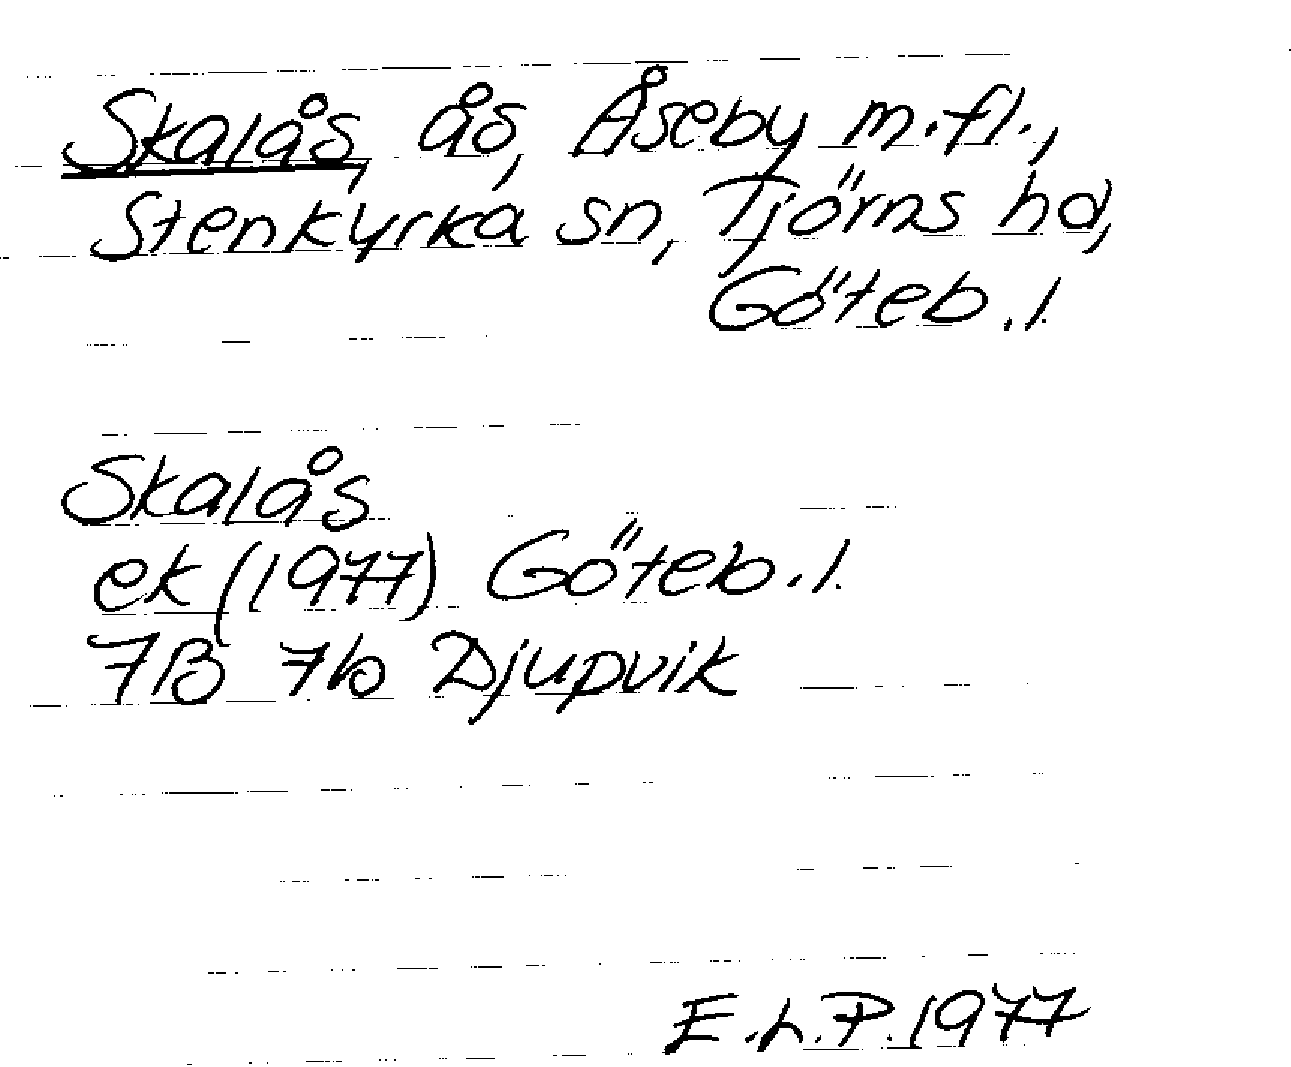 Skalås, ås, Åseby m.fl.,
Stenkyrka sn, Tjörns hd,
Göteb.l.
Skalås
ek (1977) Göteb.l.
7B 7b Djupvik
E.L.P. 1977